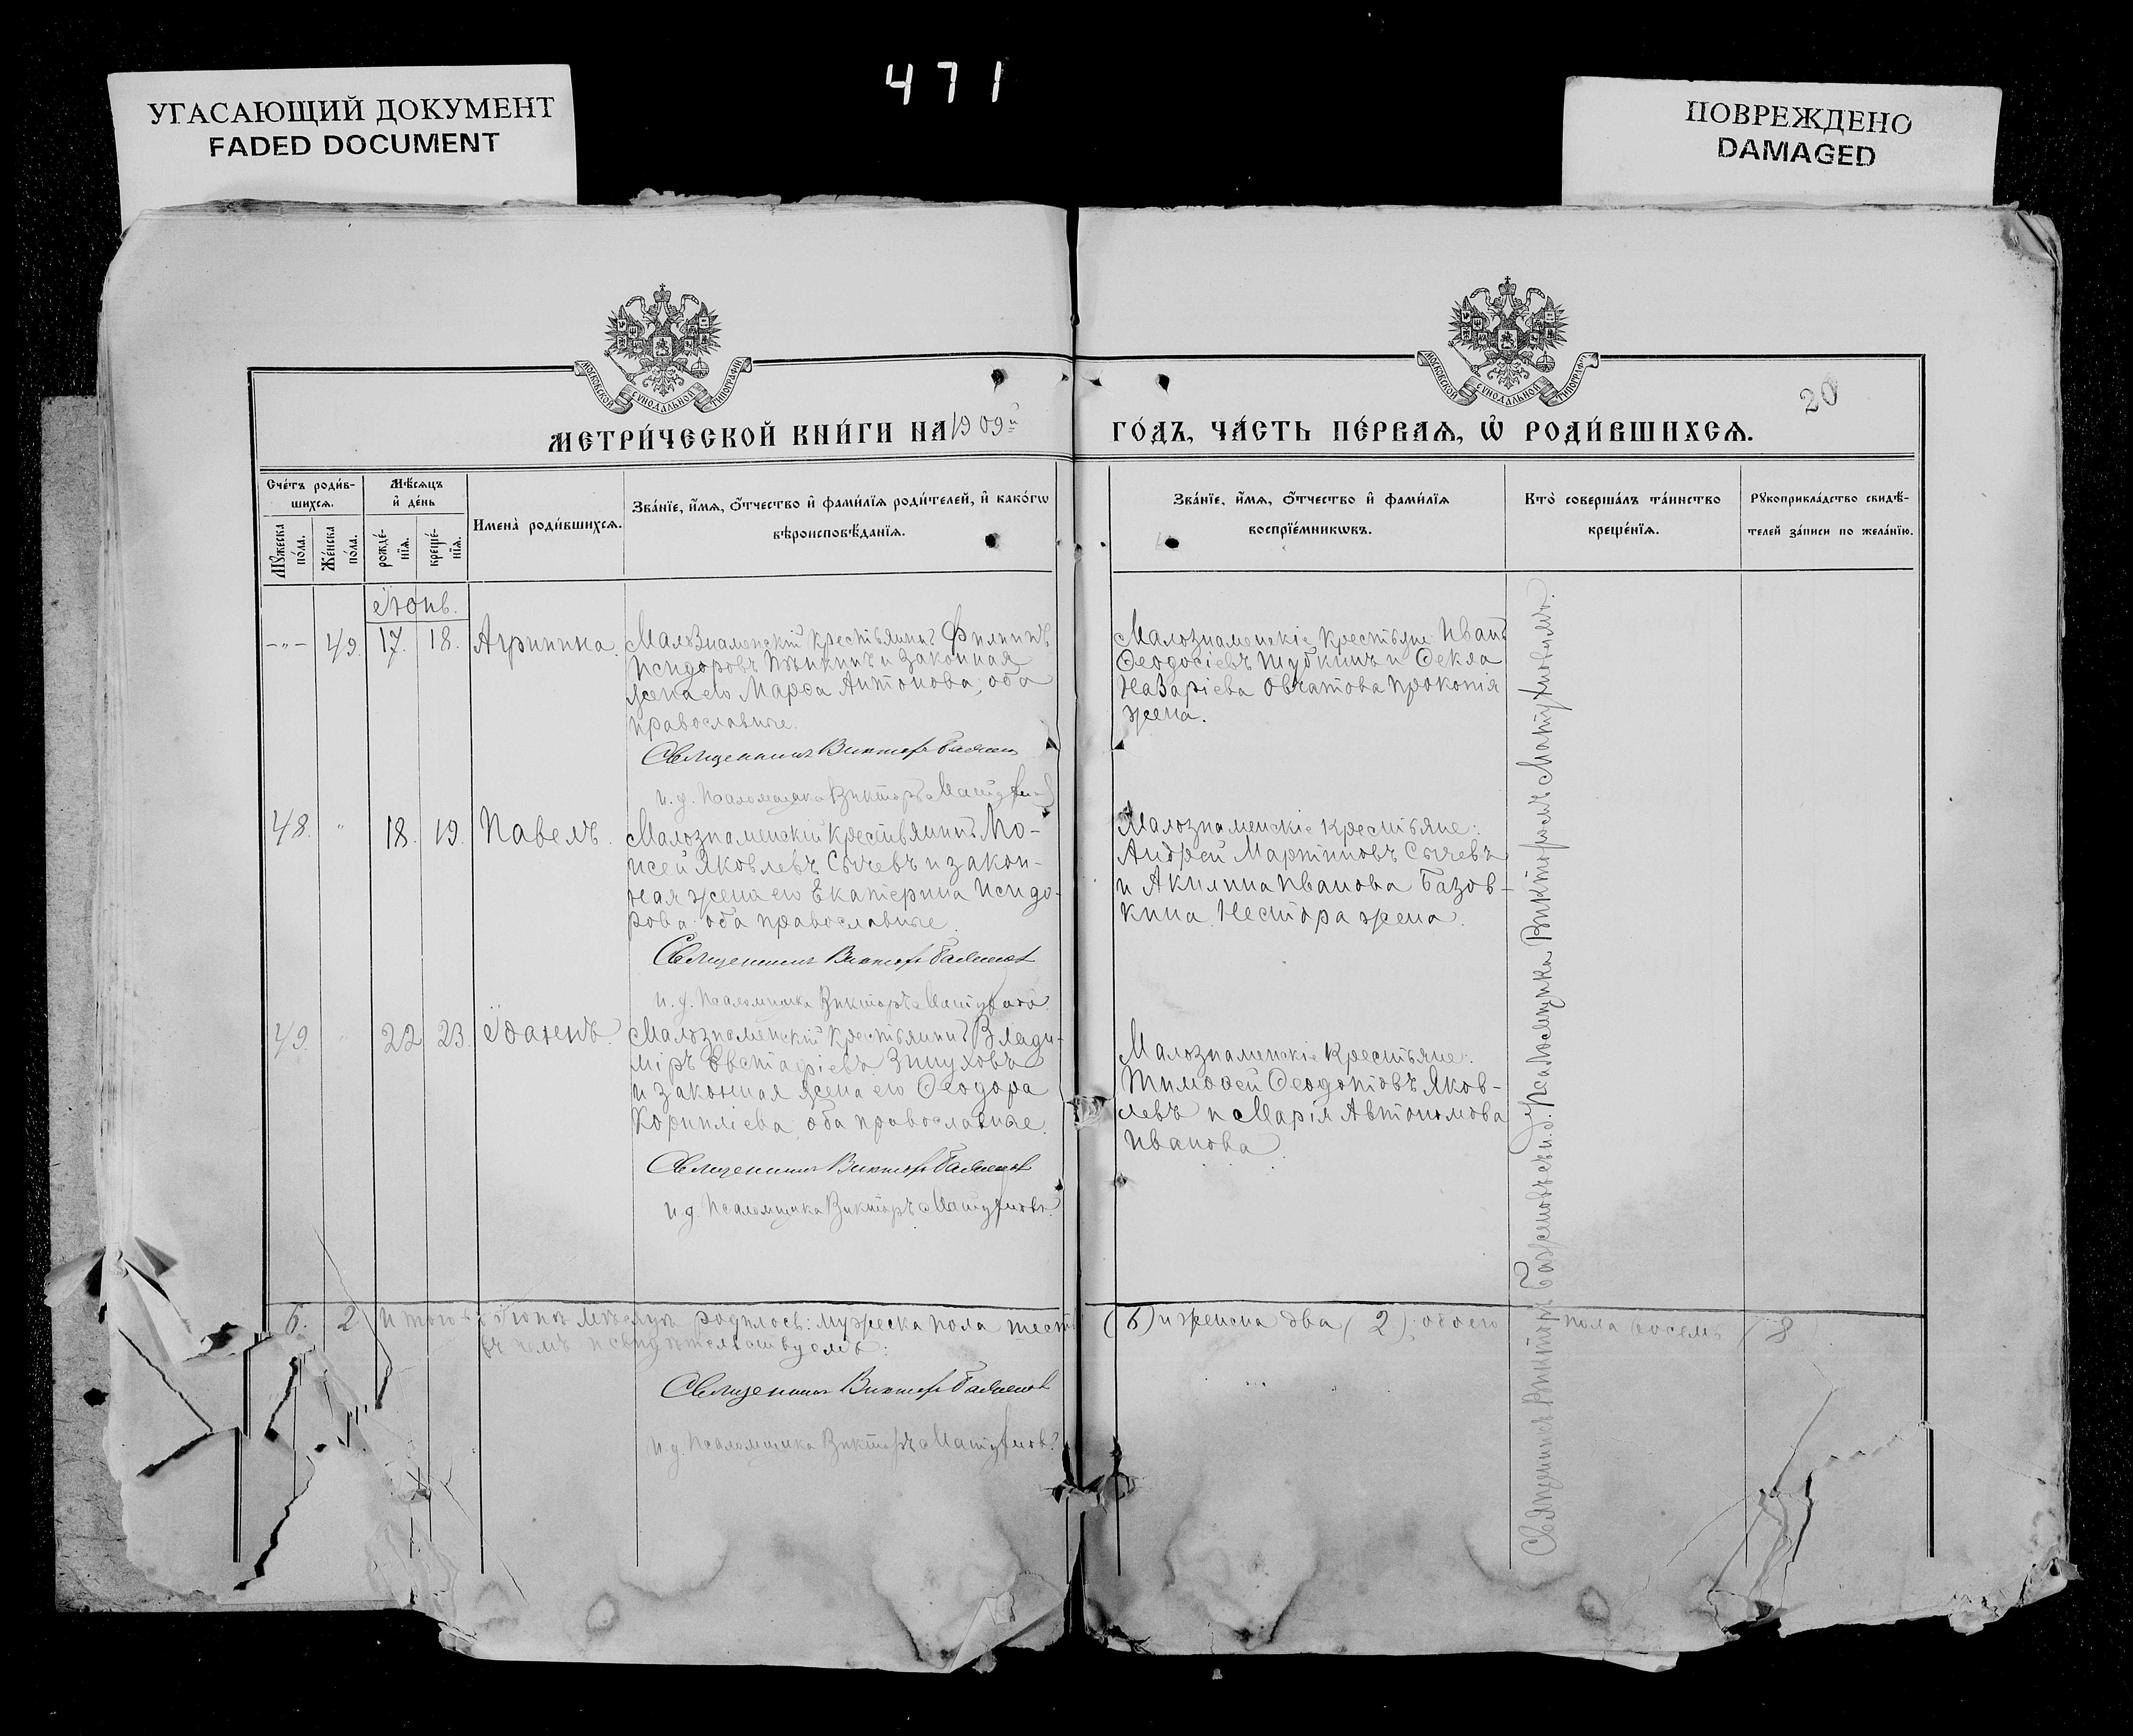 471
УГАСАЮЩИЙ ДОКУМЕНТ
FADED DOCUMENT
ПОВРЕЖДЕНО
DAMAGED
МОСКОВСКОЙ СѴНОДАЛЬНОЙ ТИПОГРАФІИ
МОСКОВСКОЙ СѴНОДАЛЬНОЙ ТИПОГРАФІИ
20
МЕТРИ́ЧЕСКОЙ КНИ́ГИ НА 1909й
ГО́ДЪ, ЧА́СТЬ ПЕ́РВАѦ, Ѡ҆ РОДИ́ВШИХСѦ.
Сче́тъ роди́в-
шихсѧ.
Мꙋ́жеска
по́ла.
Же́нска
по́ла.
Мѣ́сѧцъ
и҆ де́нь
рожде́-
нїѧ.
креще́-
нїѧ.
Имена̀ роди́вшихсѧ.
Зва́нїе, и҆́мѧ, ѻ҆́тчество и҆ фами́лїѧ роди́телей, и҆ како́гѡ
вѣроисповѣ́данїѧ.
Зва́нїе, и҆́мѧ, ѻ҆́тчество и҆ фами́лїѧ
воспрїе́мникѡвъ.
Кто̀ соверша́лъ та́инство
креще́нїѧ.
Рꙋкоприкла́дство свидѣ́-
телей за́писи по жела́нїю.
Іюнь.
-"- 49. 17. 18. Агрипина.
Малознаменскій крестьянинъ Филиппъ
Исидоровъ и законная
жена его Марѳа Антонова, оба
православные.
Священникъ Викторъ Баженовъ
и. д. Псаломщика Викторъ Матуфновъ
Малознаменскіе крестьяне Иванъ
Ѳеодосіевъ Шубкинъ и Ѳекла
Назаріева Овчатова Прокопія
жена.
48. " 18. 19. Павелъ.
Малознаменскій крестьянинъ Мо-
исей Яковлевъ Сычевъ и закон-
ная жена его Екатерина Исидо-
рова, оба православные.
Священникъ Викторъ Баженовъ
и. д. Псаломщика Викторъ
Малознаменскіе крестьяне:
Андрей Мартиновъ Сычевъ
и Акилина Иванова Базов-
кина Нестора жена.
49. " 22 23. Іоаннъ.
Малознаменскій крестьянинъ Влади-
міръ Евстафіевъ Зинуховъ
и законная жена его Ѳеодора
Корниліева, оба православные.
Священникъ Викторъ Баженовъ
и. д. Псаломщика Викторъ
Малознаменскіе крестьяне:
Тимоѳей Ѳеодотовъ Яков-
левъ и Марія Автономова
Иванова.
Священникъ Викторъ Баженовъ съ и. д. Псаломщика Викторомъ
6. 2 Итого въ Іюнѣ мѣсяцѣ родилось: мужеска пола шесть (6) и женска два (2), обоего пола восемь (8)
въ чемъ и свидѣтельствуемъ:
Священникъ Викторъ Баженовъ
и. д. Псаломщика Викторъ